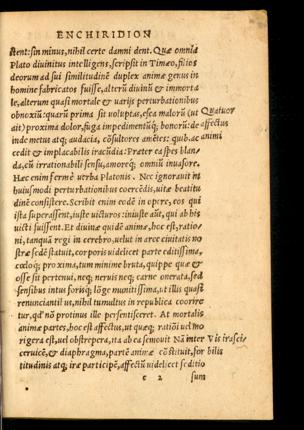 ENCHIRIDION
stent: sin minus, nihil certe damni dent. Quæ omnia
Plato divinitus intelligens, scripsit in Timæo, filios
deorum ad sui similitudinē duplex animæ genus in
homine fabricatos fuisse, alterū divinū & immorta
le, alterum quasi mortale & uarijs perturbationibus
obnoxiū: quarū prima sit uoluptas, esca malorū (ut
ait) proxima dolor, fuga impedimentūq; bonorū: de
inde metus atq; audacia, cōsultores amētes: quib. ac
cedit & implacabilis iracūdia: Præter ea spes blan-
da, cū irrationabili sensu, amoreq; omniū inuasore.
Quatuor
affectus
animi
Hæc enim ferme uerba Platonis. Nec ignorauit in
huiusmodi perturbationibus coercēdis, uitæ beatitu
dinē consistere. Scribit enim eodē in opere, eos qui
ista superassent, iuste uicturos: iniuste aūt, qui ab his
victi fuissent. Et diuinæ quidē animæ, hoc est, ratio/
ni, tanquā regi in cerebro, uelut in arce ciuitatis no
stræ sedē statuit, corporis uidelicet parte editissima,
cœloq; proxima, tum minime bruta, quippe quæ &
osse sit pertenui, neq; neruis neq; carne onerata, sed
sensibus intus forisq; lōge munitissima, ut illis quasi
renunciantib. us, nihil tumultus in republica coorire
tur, qd' nō protinus ille persentisceret. At mortalis
animæ partes, hoc est affectus, ut quæq; ratiōi uel mo
rigera est, uel obstrepera, ita ab ea semouit Nā inter
ceruicē, & diaphragma, partē animæ cōstituit, for
titudinis atq; iræ participē, affectū uidelicet seditio
Vis irasci/
bilis
c 2 sum